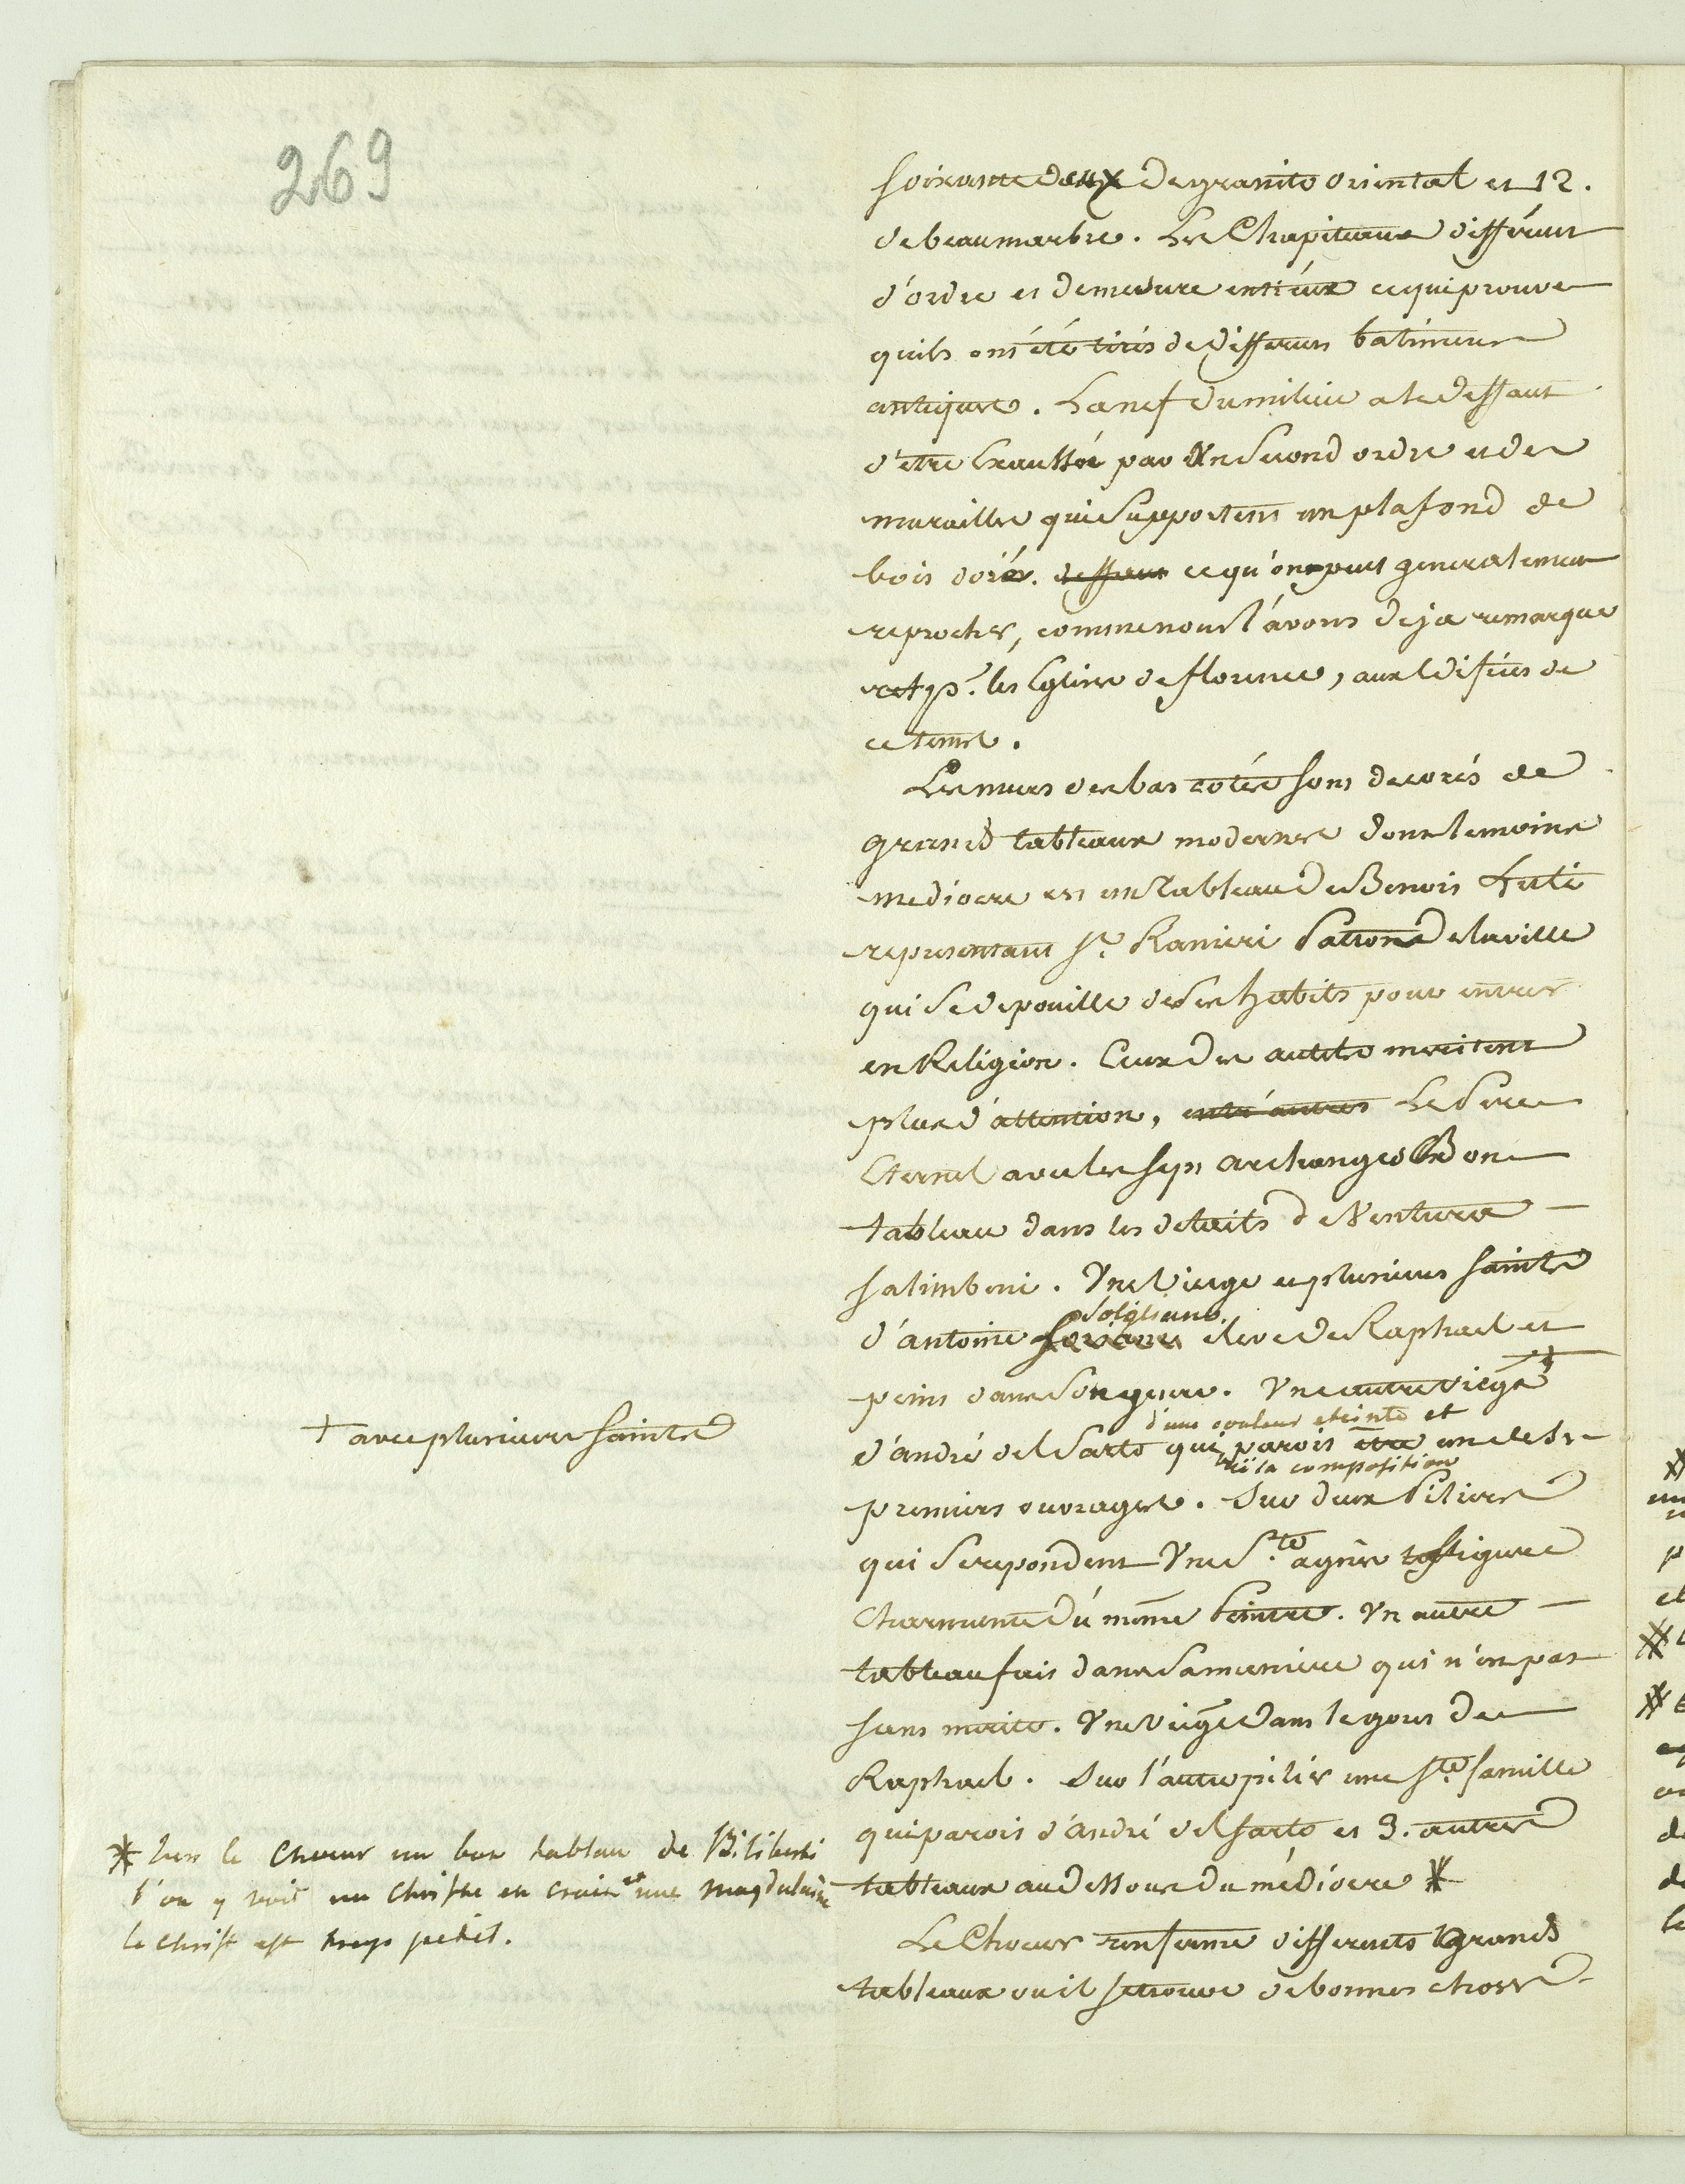 269
soixante deux de granito oriental et 12.
de beau marbre. Les Chapiteaux different
d'ordre et de mesure entr'eux ce qui prouve
quils ont été tirés de differens batimens
antiques. La nef du milieu a le deffaut
d'etre exaussée par un second ordre et des
murailles qui supportent un plafond de
bois doré. deffaut ce qu'on peut generalement
reprocher, comme nous l'avons deja remarqué
les Eglises de florence, aux Edifices de
ce tems.
Les murs des bas cotés sont decorés de
grands tableaux modernes dont le moins
mediocre est un tableau de Benoit Luti
representant St. Ranieri Patron de la ville
qui se depouille de ses habits pour entrer
en Religion. Ceux des autels meritent
plus d'attention, entr'autres Le Pere
Eternel avec les sept archanges Bon
tableau dans les details de Ventura
salimbeni. Une Vierge et plusieurs saints
Solgliano.
d'antoine eleve de Raphael et
peint dans son genre. Une autre viege †
d'une couleur eteinte et
d'andré del Sarto qui parois etre un de ses
la composition
premiers ouvrages. Sur deux Piliers
qui se repondent Une Ste agnès figure
charmante du même Peintre. Un autre
tableau fait dans sa maniere qui n'est pas
sans merite. Une Viege dans le gout de
Raphael. Sur l'autre pilier une Ste famille
qui parois d'andré del sarto et 3. autres
tableaux au dessous du médiocre *
Le Choeur renferme differents grands
tableaux ou il se trouve de bonnes choses
† avec plusieurs saints
* dans le choeur un bon tableau de Biliberti
l'on y voit un Christ en croix et une magdelaine
le christ est trop petit.